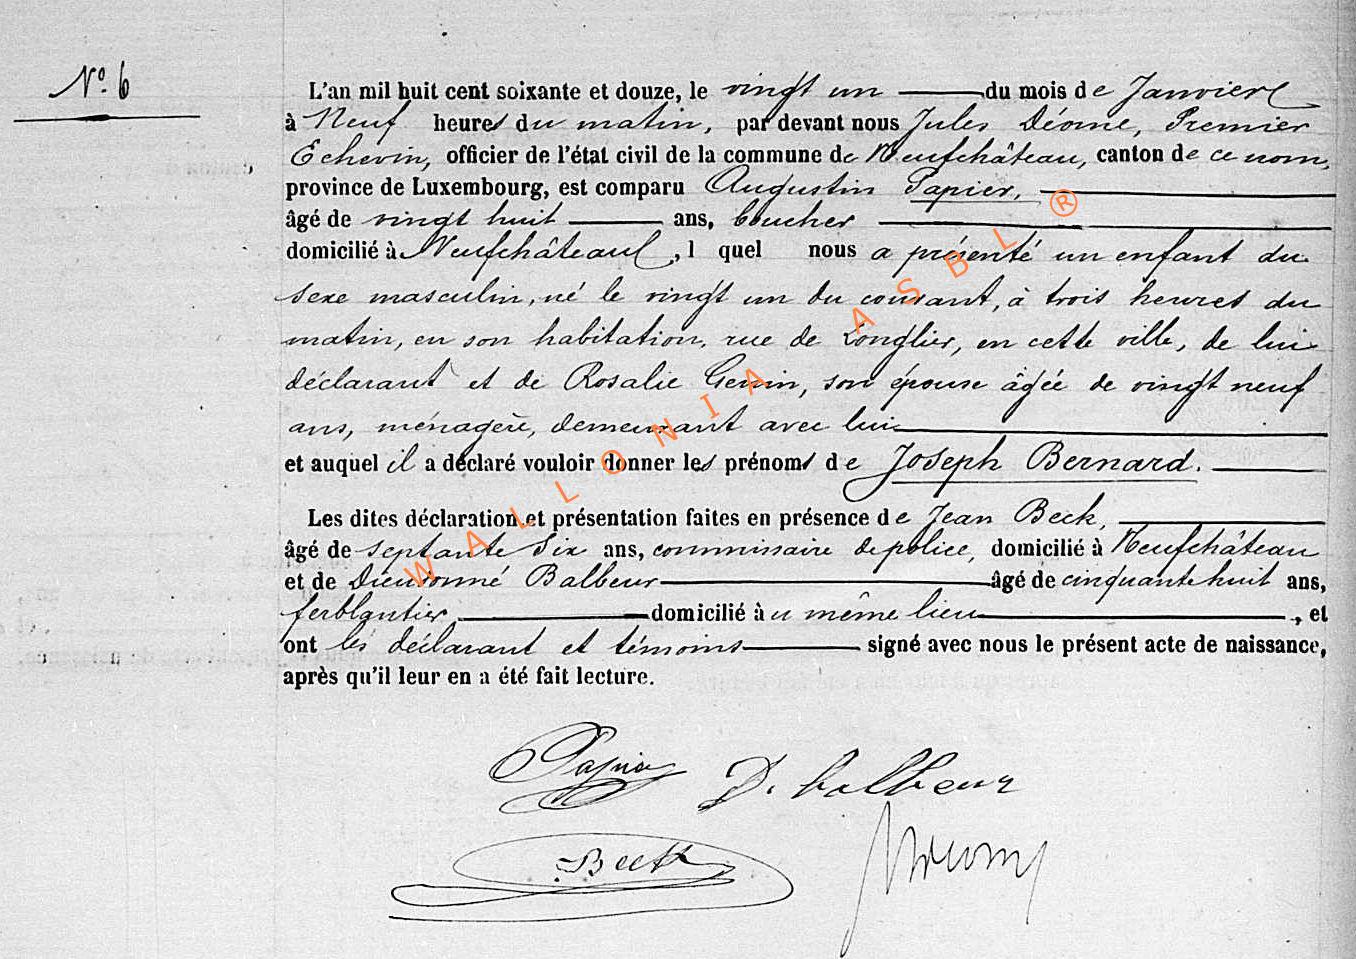 N° 6
L'an mil huit cent soixante et douze, le vingt un du mois de Janvier
à Neuf heures du matin, par devant nous Jules Déome, Premier
Echevin, officier de l'état civil de la commune de Neufchâteau, canton de ce nom,
province de Luxembourg, est comparu Augustin Papier,
âgé de vingt huit ans, boucher
domicilié à Neufchâteau, l quel nous a présenté un enfant du
sexe masculin, né le vingt un du courant, à trois heures du
matin, en son habitation, rue de Longlier, en cette ville, de lui
déclarant et de Rosalie Genin, son épouse âgée de vingt neuf
ans, ménagère, demeurant avec lui
et auquel il a déclaré vouloir donner les prénoms de Joseph Bernard.
Les dites déclaration et présentation faites en présence de Jean Beck,
âgé de septante six ans, commissaire de police, domicilié à Neufchâteau
et de Dieudonné Balbeur âgé de cinquante huit ans,
ferblantier domicilié au même lieu, et
ont les déclarant et témoins signé avec nous le présent acte de naissance,
après qu'il leur en a été fait lecture.
Papier D. balbeur
Beck
WALLONIA ASBL ®